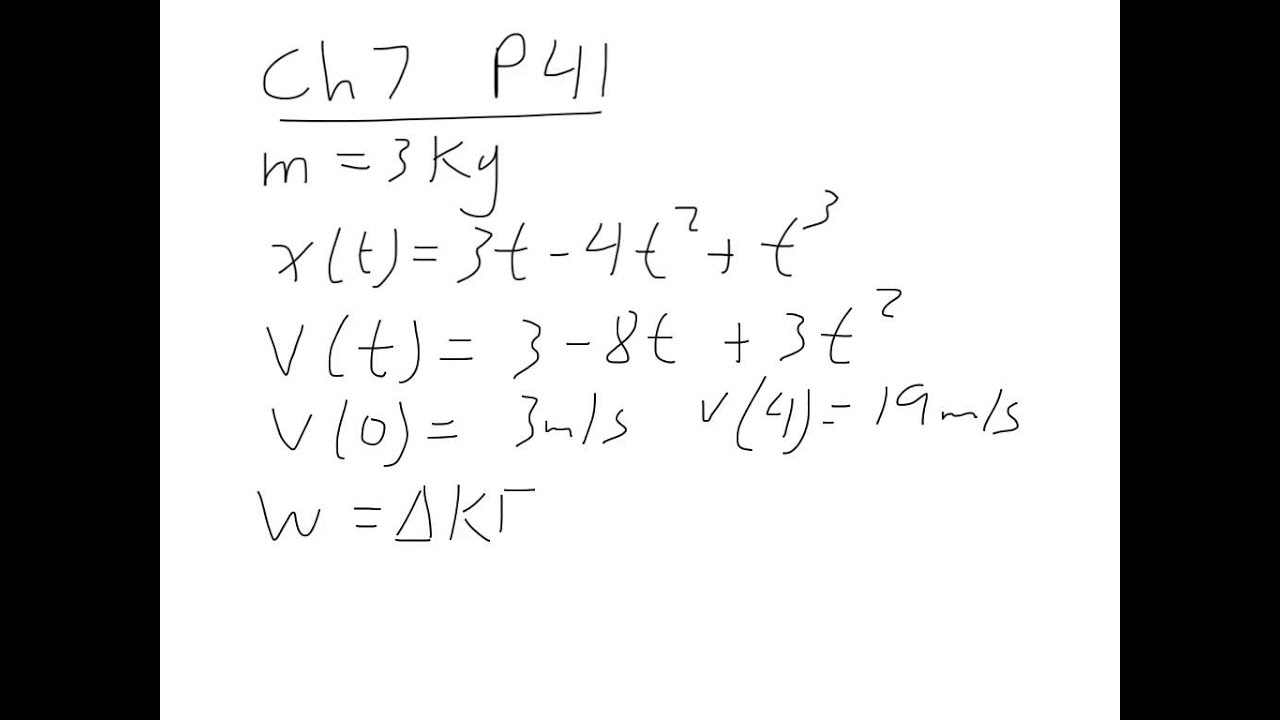 Ch 7 P41
m = 3 Kg
x(t) = 3t - 4t² + t³
V(t) = 3 - 8t + 3t²
V(0) = 3m/s v(4) = 19m/s
W = ΔKΓ